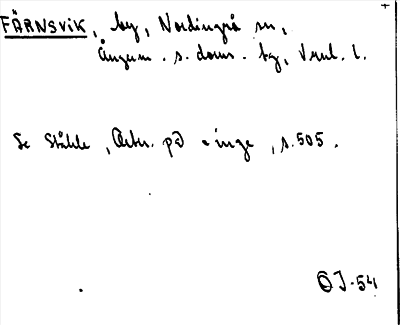 FÄRNSVIK, by, Nordingrå sn,
Ångerm. s. doms. bg, Vnrl. l.
Se Ståhle, Ortn. på -inge, s. 505.
OJ-54